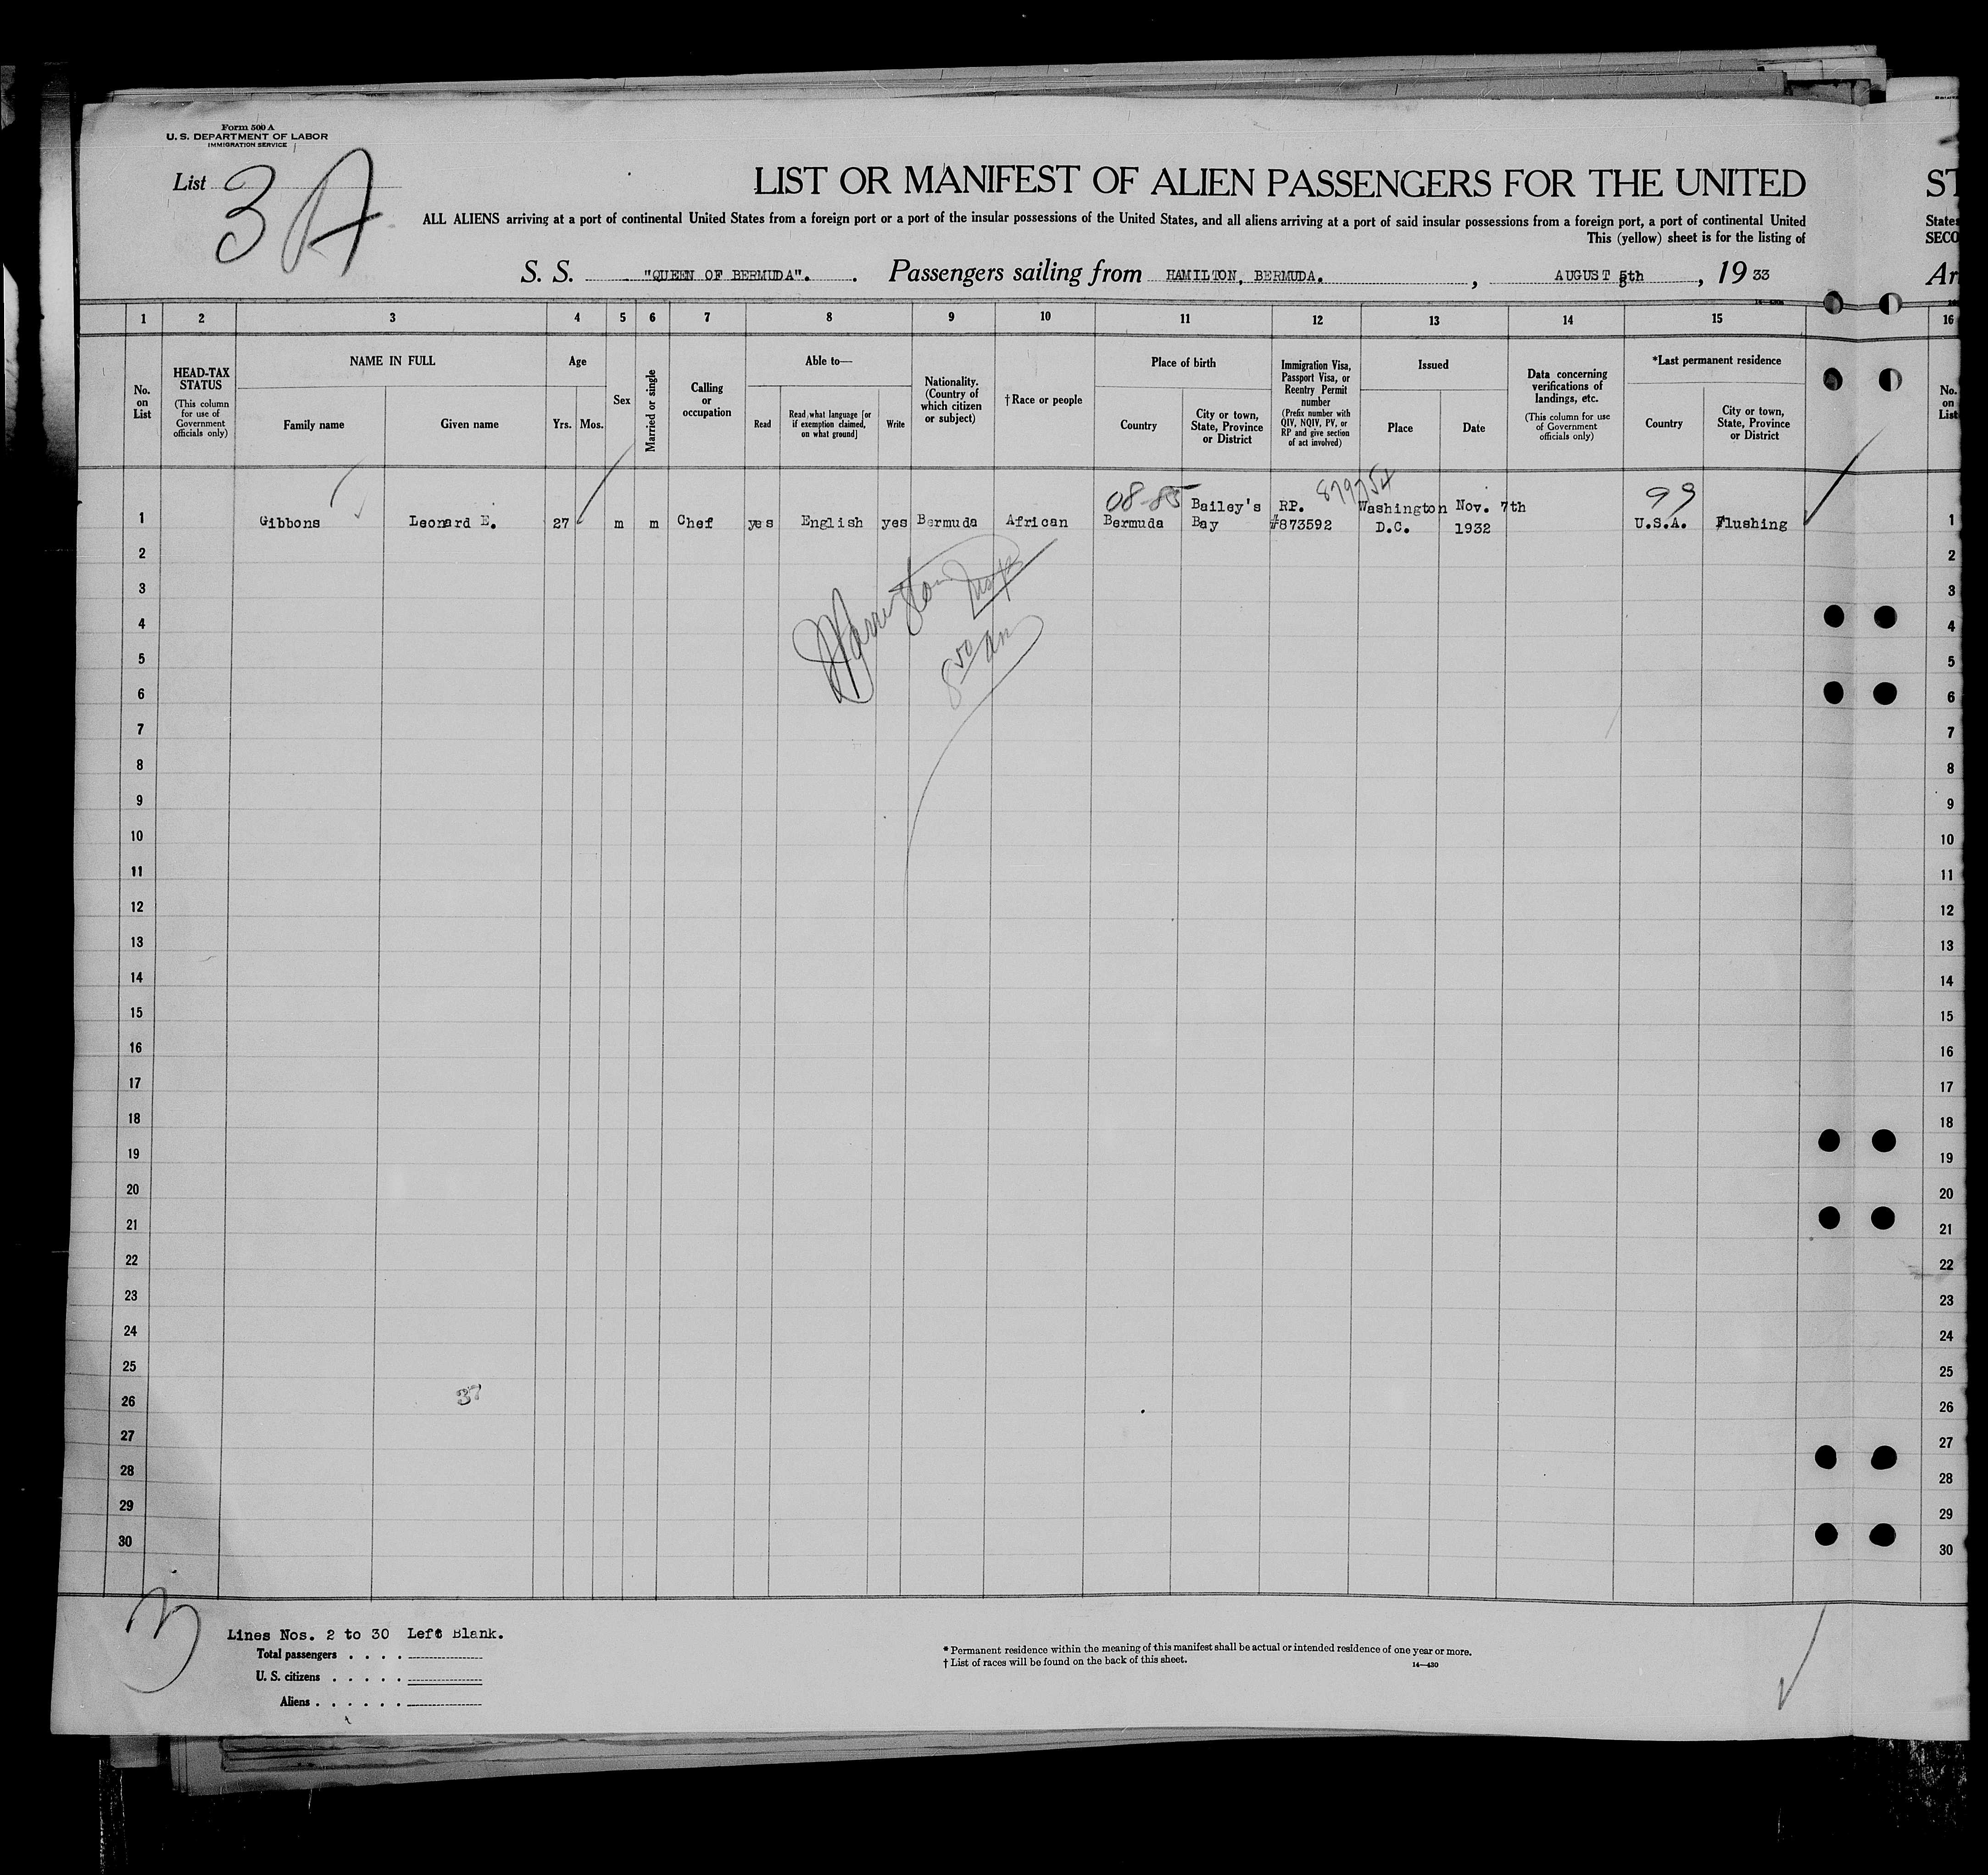 Form 500 A
U. S. DEPARTMENT OF LABOR
IMMIGRATION SERVICE
List 3 A
LIST OR MANIFEST OF ALIEN PASSENGERS FOR THE UNITED
ALL ALIENS arriving at a port of continental United States from a foreign port or a port of the insular possessions of the United States, and all aliens arriving at a port of said insular possessions from a foreign port, a port of continental United
This (yellow) sheet is for the listing of
S. S. "QUEEN OF BERMUDA". Passengers sailing from HAMILTON, BERMUDA. , AUGUST 5th , 19 33
ST
States
SECO
Ar
1 2 3 4 5 6 7 8 9 10 11 12 13 14 15 16
No. on List
HEAD-TAX STATUS
(This column for use of Government officials only)
NAME IN FULL
Family name
Given name
Age
Yrs.
Mos.
Sex
Married or single
Calling or occupation
Able to—
Read
Read what language [or if exemption claimed, on what ground]
Write
Nationality. (Country of which citizen or subject)
†Race or people
Place of birth
Country
City or town, State, Province or District
Immigration Visa, Passport Visa, or Reentry Permit number
(Prefix number with QIV, NQIV, PV, or RP and give section of act involved)
Issued
Place
Date
Data concerning verifications of landings, etc.
(This column for use of Government officials only)
*Last permanent residence
Country
City or town, State, Province or District
No. on List
08-85 879754 99
1 Gibbons Leonard E. 27 m m Chef yes English yes Bermuda African Bermuda Bailey's Bay RP. #873592 Washington D.C. Nov. 7th 1932 U.S.A. Flushing 1
2 2
3 3
4 4
5 5
6 6
7 7
8 8
9 9
10 10
11 11
12 12
13 13
14 14
15 15
16 16
17 17
18 18
19 19
20 20
21 21
22 22
23 23
24 24
25 25
26 26
27 27
28 28
29 29
30 30
8 50 am
37
3
Lines Nos. 2 to 30 Left Blank.
Total passengers . . . .
U. S. citizens . . . . .
Aliens . . . . . .
* Permanent residence within the meaning of this manifest shall be actual or intended residence of one year or more.
† List of races will be found on the back of this sheet.
14—430